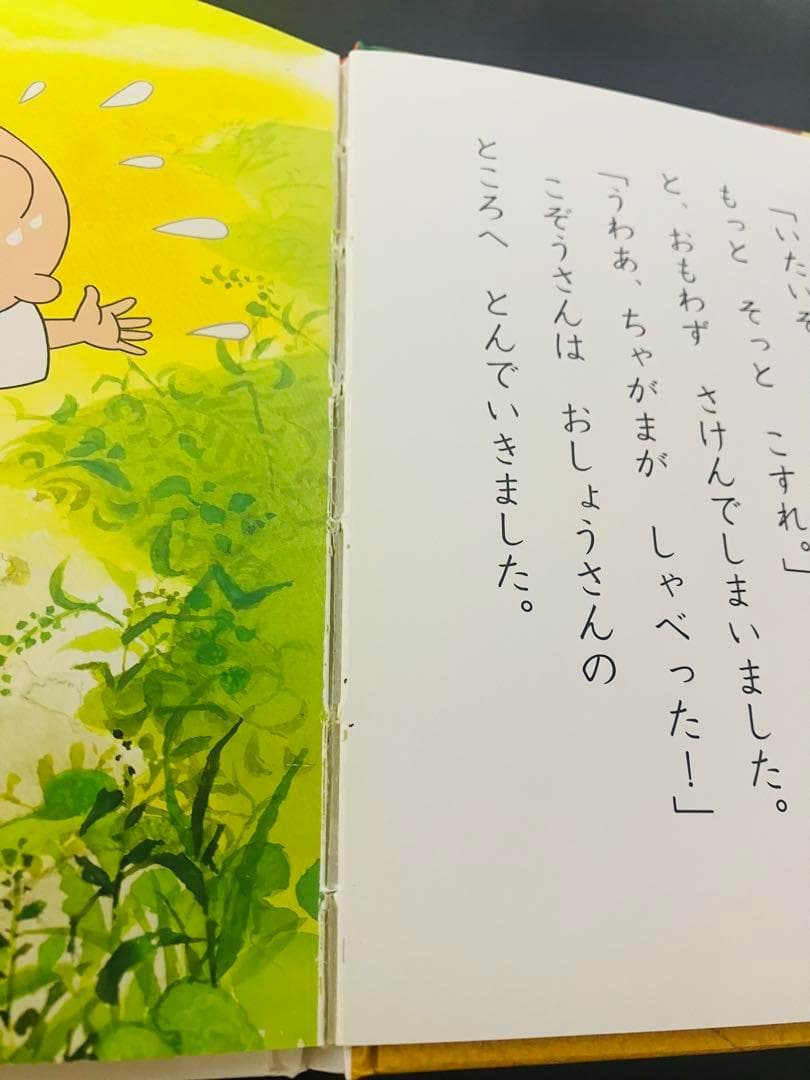 「いたいぞ
もっと　そっと　こすれ。」
と、おもわず　さけんでしまいました。
「うわあ、ちゃがまが　しゃべった！」
こぞうさんは　おしょうさんの
ところへ　とんでいきました。